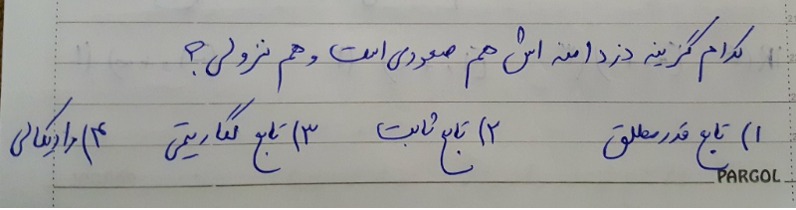 کدام گزینه در دامنه اش هم صعودی است و هم نزولی؟
۱) تابع قدرمطلق ۲) تابع ثابت ۳) تابع لگاریتمی ۴) رادیکالی
PARGOL